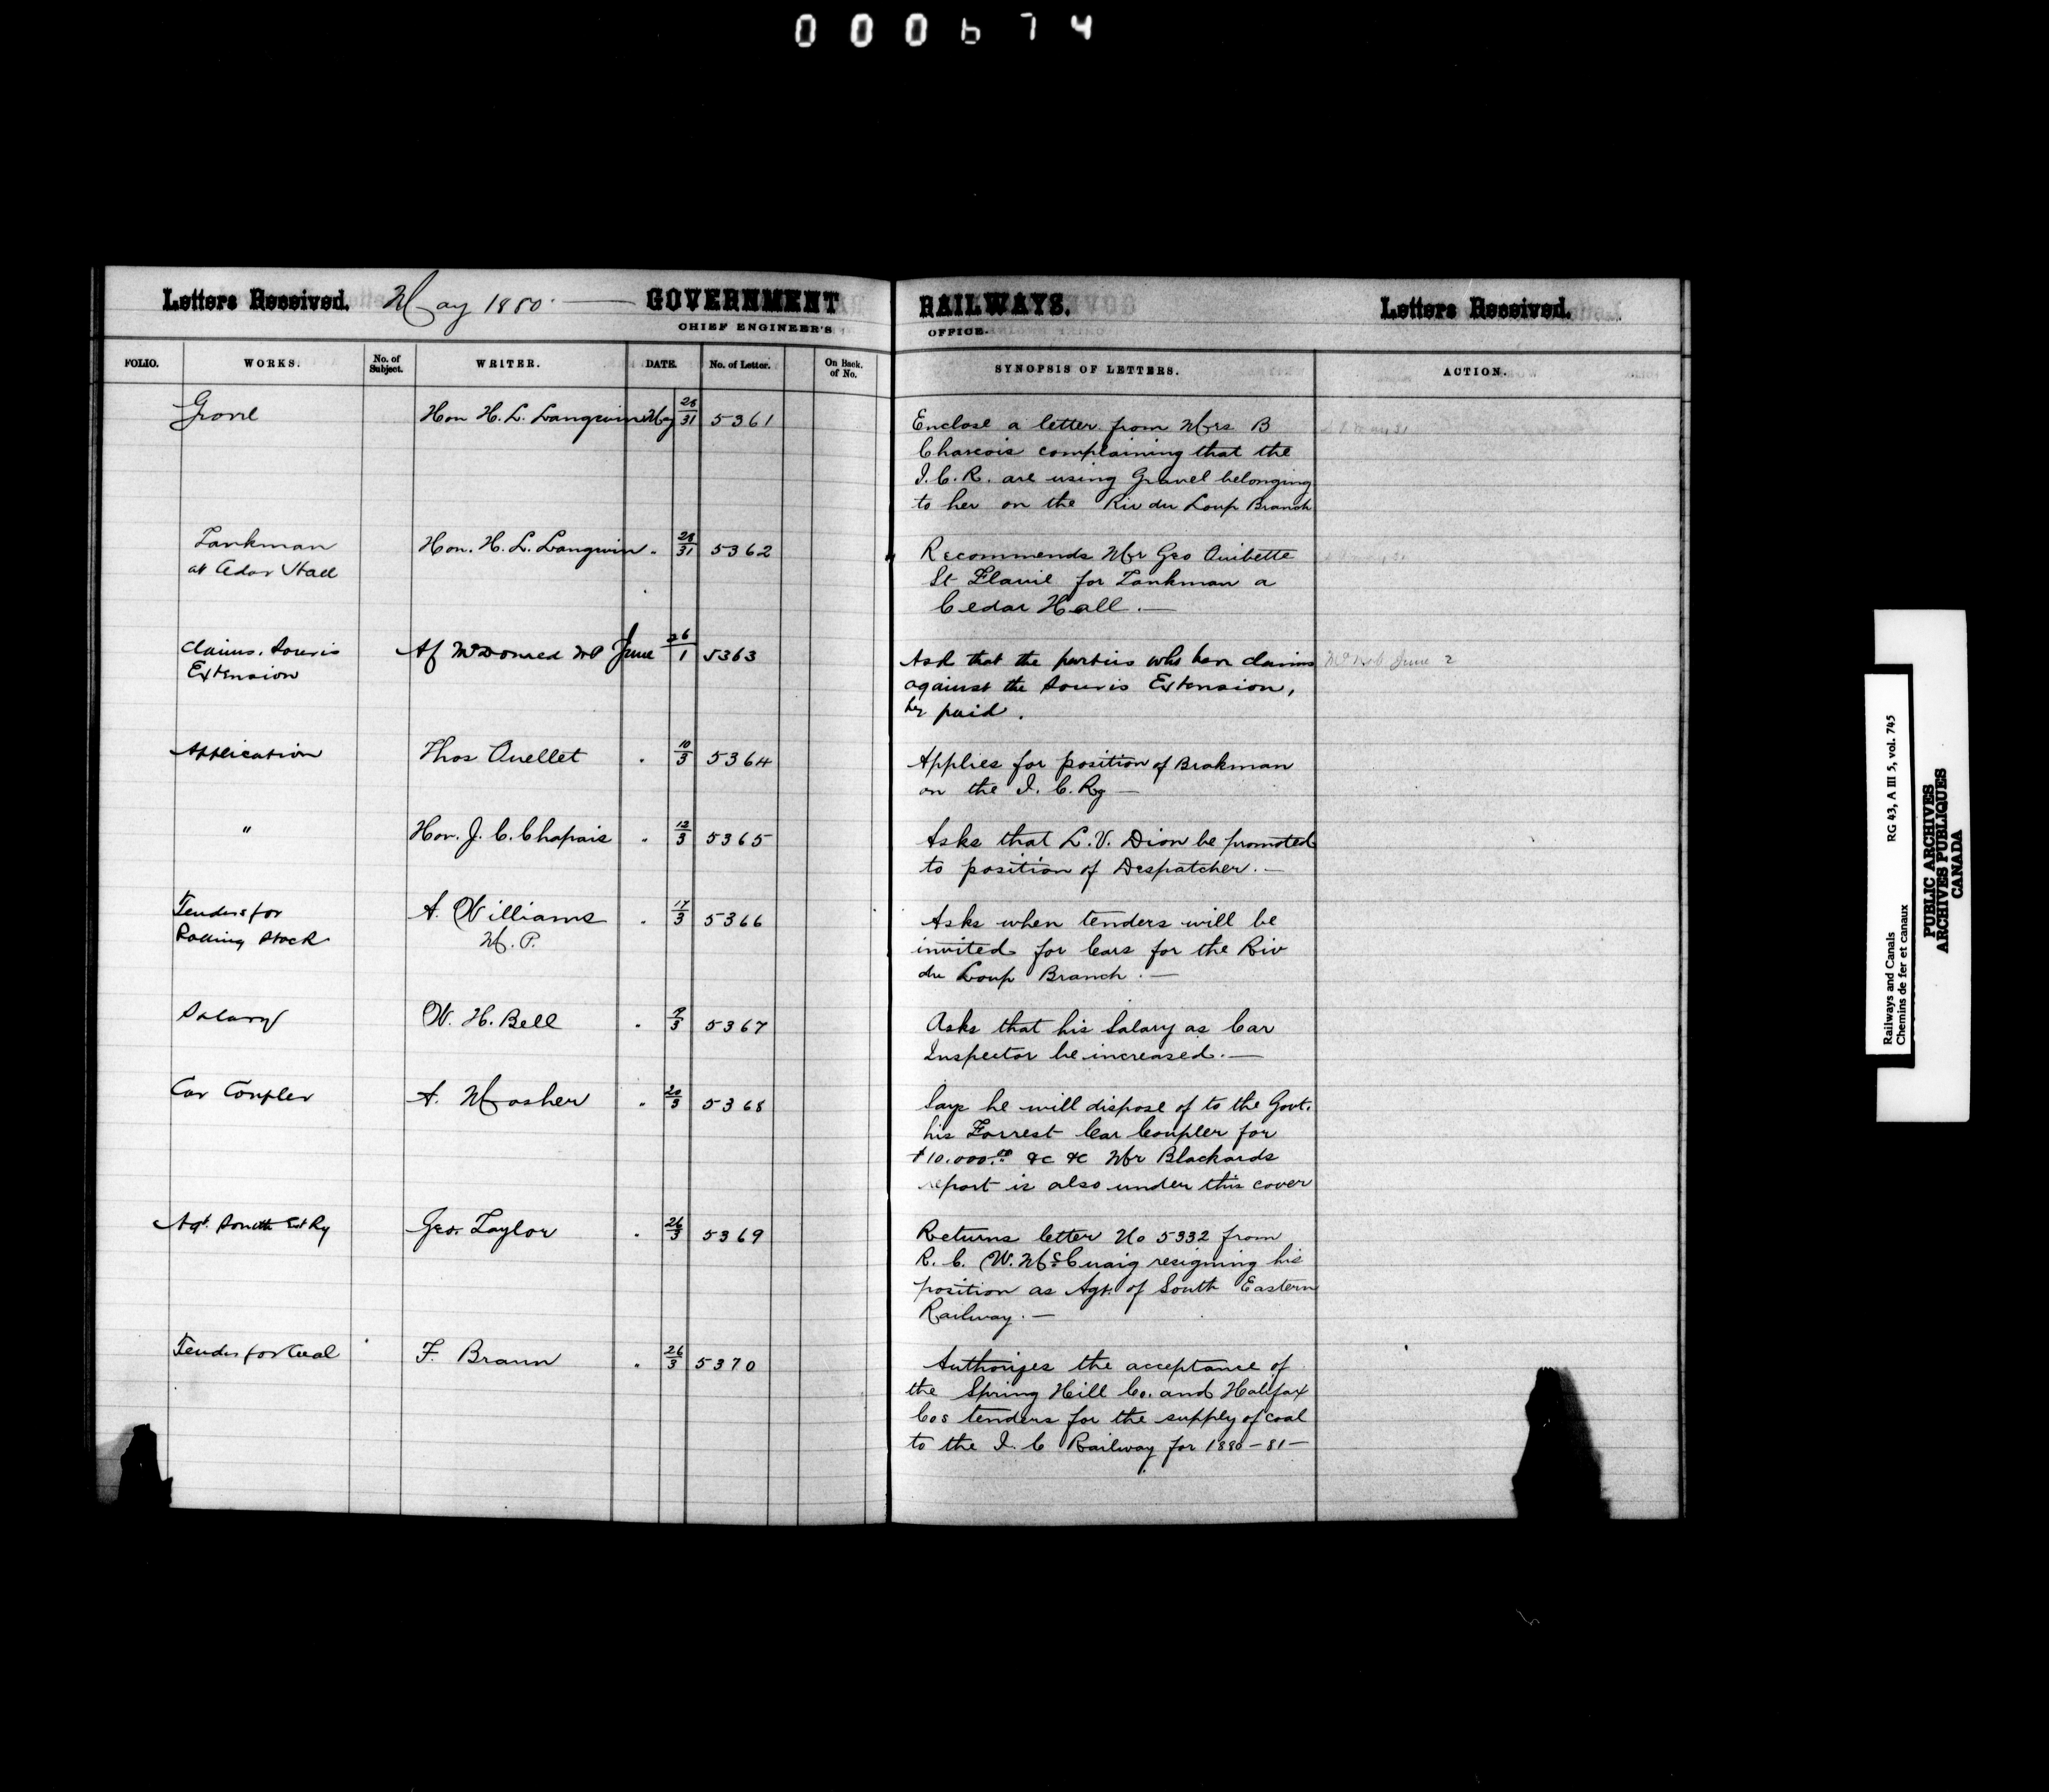 000674
Letters Received. May 1880. — GOVERNMENT RAILWAYS. Letters Received.
CHIEF ENGINEER'S OFFICE.
FOLIO. WORKS. No. of Subject. WRITER. DATE. No. of Letter. On Back. of No. SYNOPSIS OF LETTERS. ACTION.
Hon H. L. Langevin May 28/31 5361 Enclose a letter from Mrs B
complaining that the
I. C. R. are using Gravel belonging
to her on the Riv du Loup Branch
Tankman Hon. H. L. Langevin . 28/31 5362 Recommends Mr Geo Ouibette
at Cedar Hall St Flavie for Tankman a
Cedar Hall. —
Claims. Souris June 26/1 5363 Ask that the parties who have claims June 2
Extension against the Souris Extension,
be paid.
Application Thos Ouellet . 10/3 5364 Applies for position of Brakman
on the I. C. Ry —
" Hon. J. C. Chapais . 12/3 5365 Asks that L. V. Dion be promoted
to position of Despatcher. —
Tenders for A. Williams . 17/3 5366 Asks when tenders will be
Rolling Stock M. P. invited for Cars for the Riv
du Loup Branch. —
Salary W. H. Bell . /3 5367 Asks that his Salary as Car
Inspector be increased. —
Car Coupler A. Mosher . 20/3 5368 Says he will dispose of to the Govt.
his Forrest Car Coupler for
$10.000.00 &c &c Mr Blackards
report is also under this cover
Agt. South Est Ry Geo. Taylor . 26/3 5369 Returns letter No 5332 from
R. C. W. McCuaig resigning his
position as Agt. of South Eastern
Railway. —
Tender for Coal F. Braun . 26/3 5370 Authorizes the acceptance of
the Spring Hill Co. and Halifax
Cos tenders for the supply of coal
to the I. C Railway for 1880-81 —
Railways and Canals RG 43, A III 5, vol. 745
Chemins de fer et canaux
PUBLIC ARCHIVES
ARCHIVES PUBLIQUES
CANADA